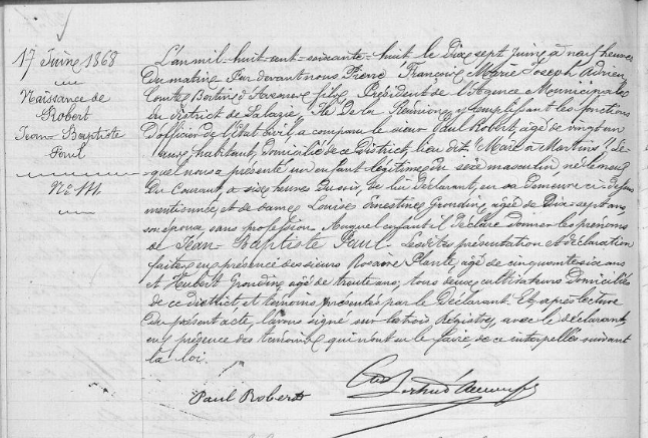 17 Juin 1868
Naissance de
Robert
Jean Baptiste
Paul
No 111
L'an mil-huit-cent-soixante-huit le Dix sept Juin à neuf heures
du matin Par devant nous Pierre François Marie Joseph Adrien
Comte Bertin d'Avesnes fils, Président de l'Agence Municipale
du District de Salazie Ile De la Réunion, y remplissant les fonctions
d'officier de l'Etat Civil, a comparu le sieur Paul Robert, âgé de vingt un
ans, habitant, domicilié de ce District, lieu dit Mare à Martin, le
quel nous a présenté un enfant légitime du sexe masculin, né le neuf
du Courant, à six heures du soir, de lui déclarant, en sa demeure ci-dessus
mentionnée, et de dame Louise Ernestine Grondin, agée de Dix-sept ans,
son épouse, sans profession. Auquel enfant il déclare donner les prénoms
de Jean-Baptiste Paul. Lesdites présentation et déclaration
faites en présence des sieurs Rosaire Plante, agé de cinquante six ans
et Hubert Grondin agé de trente ans; tous deux cultivateurs domiciliés
de ce district et témoins présentés par le Déclarant. Et après lecture
du présent acte, l'avons signé sur les trois Registres, avec le déclarant,
en présence des témoins qui n'ont su le faire, de ce interpellés suivant
la loi.
Paul Robert